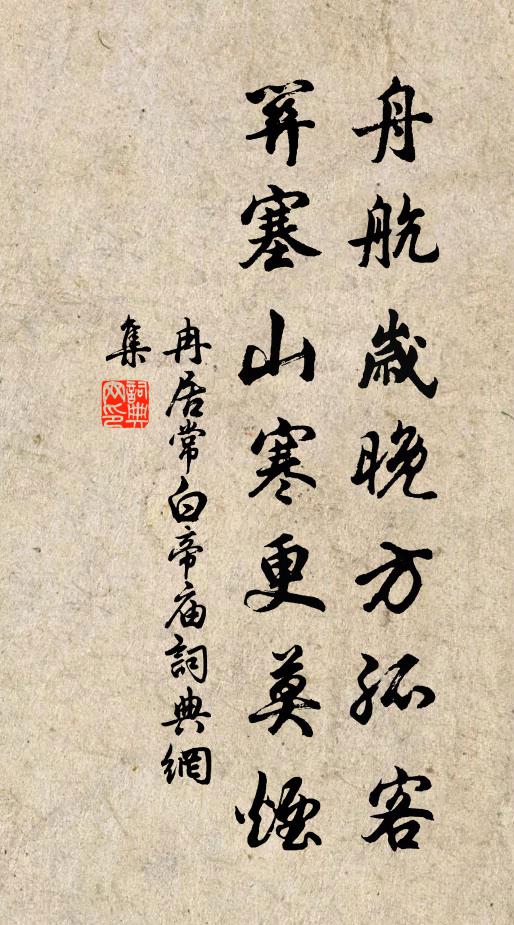 舟航歲晚方孤客
關塞山寒更莫煙
冉居常白帝庙詞典網
集
詞典
网印